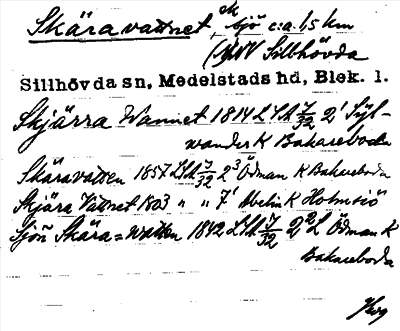 Skäravattnet, sjö c:a 1,5 km
NV Sillhövda
Sillhövda sn, Medelstads hd, Blek. l.
Skjärra Wannet 1814 LSA 7/32 2' Syl-
wander K Bakareboda
Skäravatten 1857 LSA 7/32 2³ Ödman K Bakareboda
Skjära Vattnet 1803 " " 7' Melin K Holmsjö
Sjön Skära=watten 1842 LSA 7/32 2² Ödman K
Bakareboda